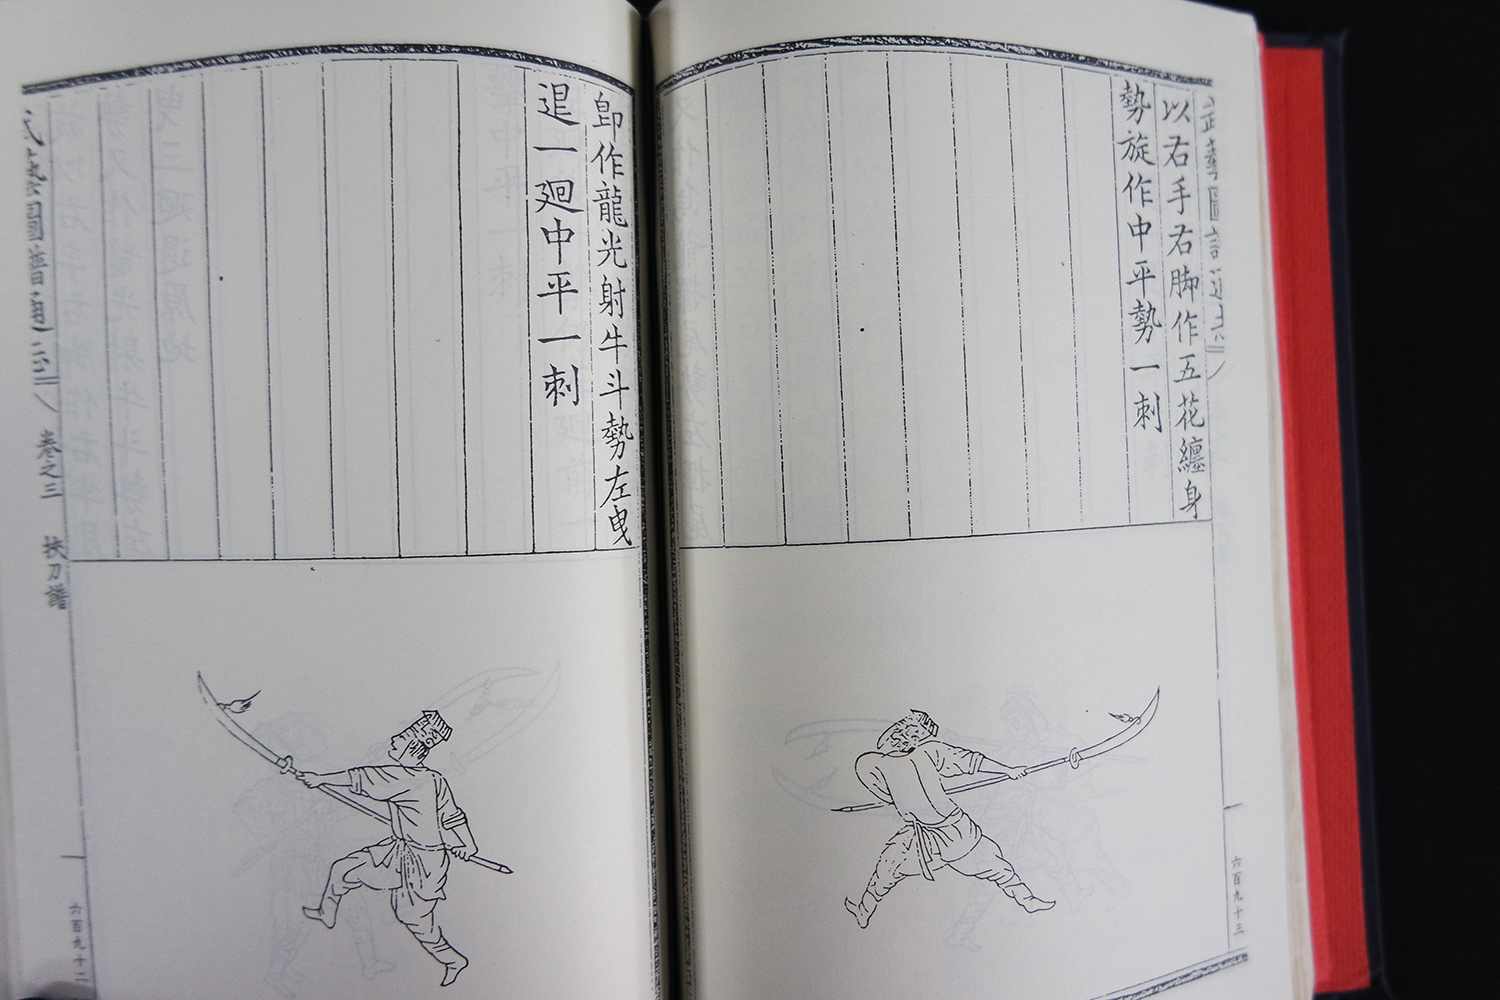 武藝圖譜通志
六百九十三
以右手右脚作五花纏身
勢旋作中平勢一刺
卽作龍光射牛斗勢左曳
退一廻中平一刺
武藝圖譜通志 卷之三 挾刀譜
六百九十二